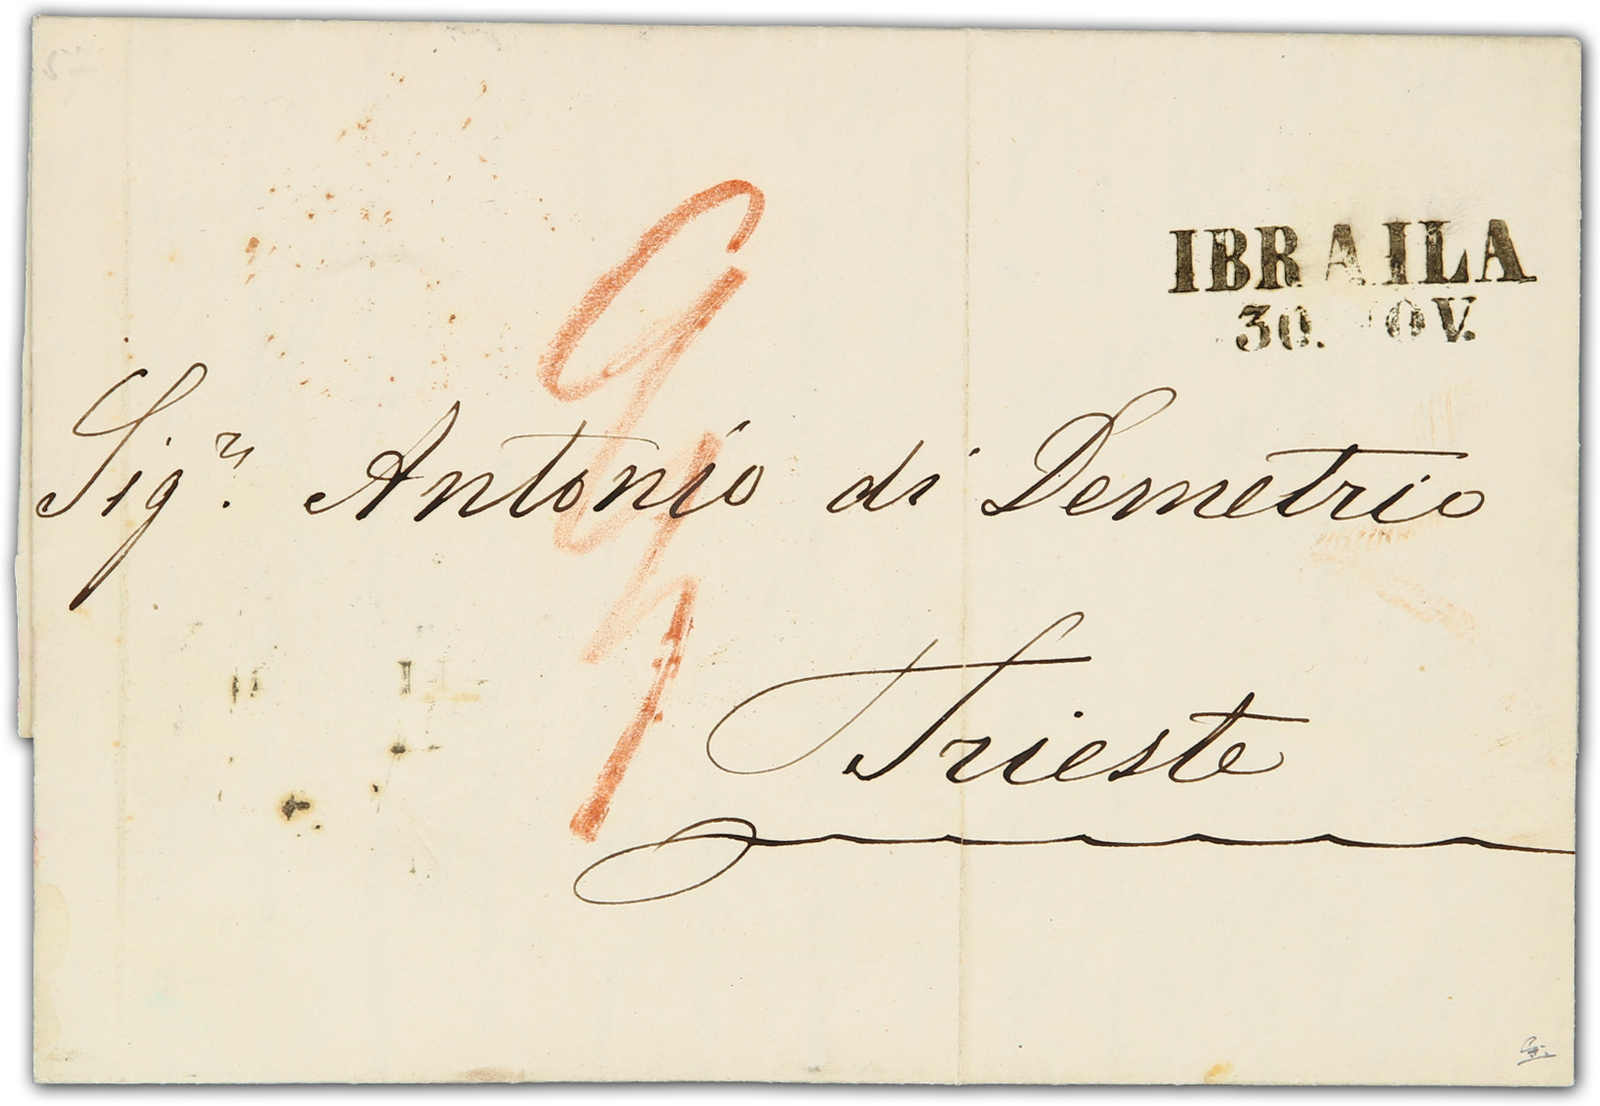 IBRAILA
30. NOV.
Sigr. Antonio di Demetrio
Trieste